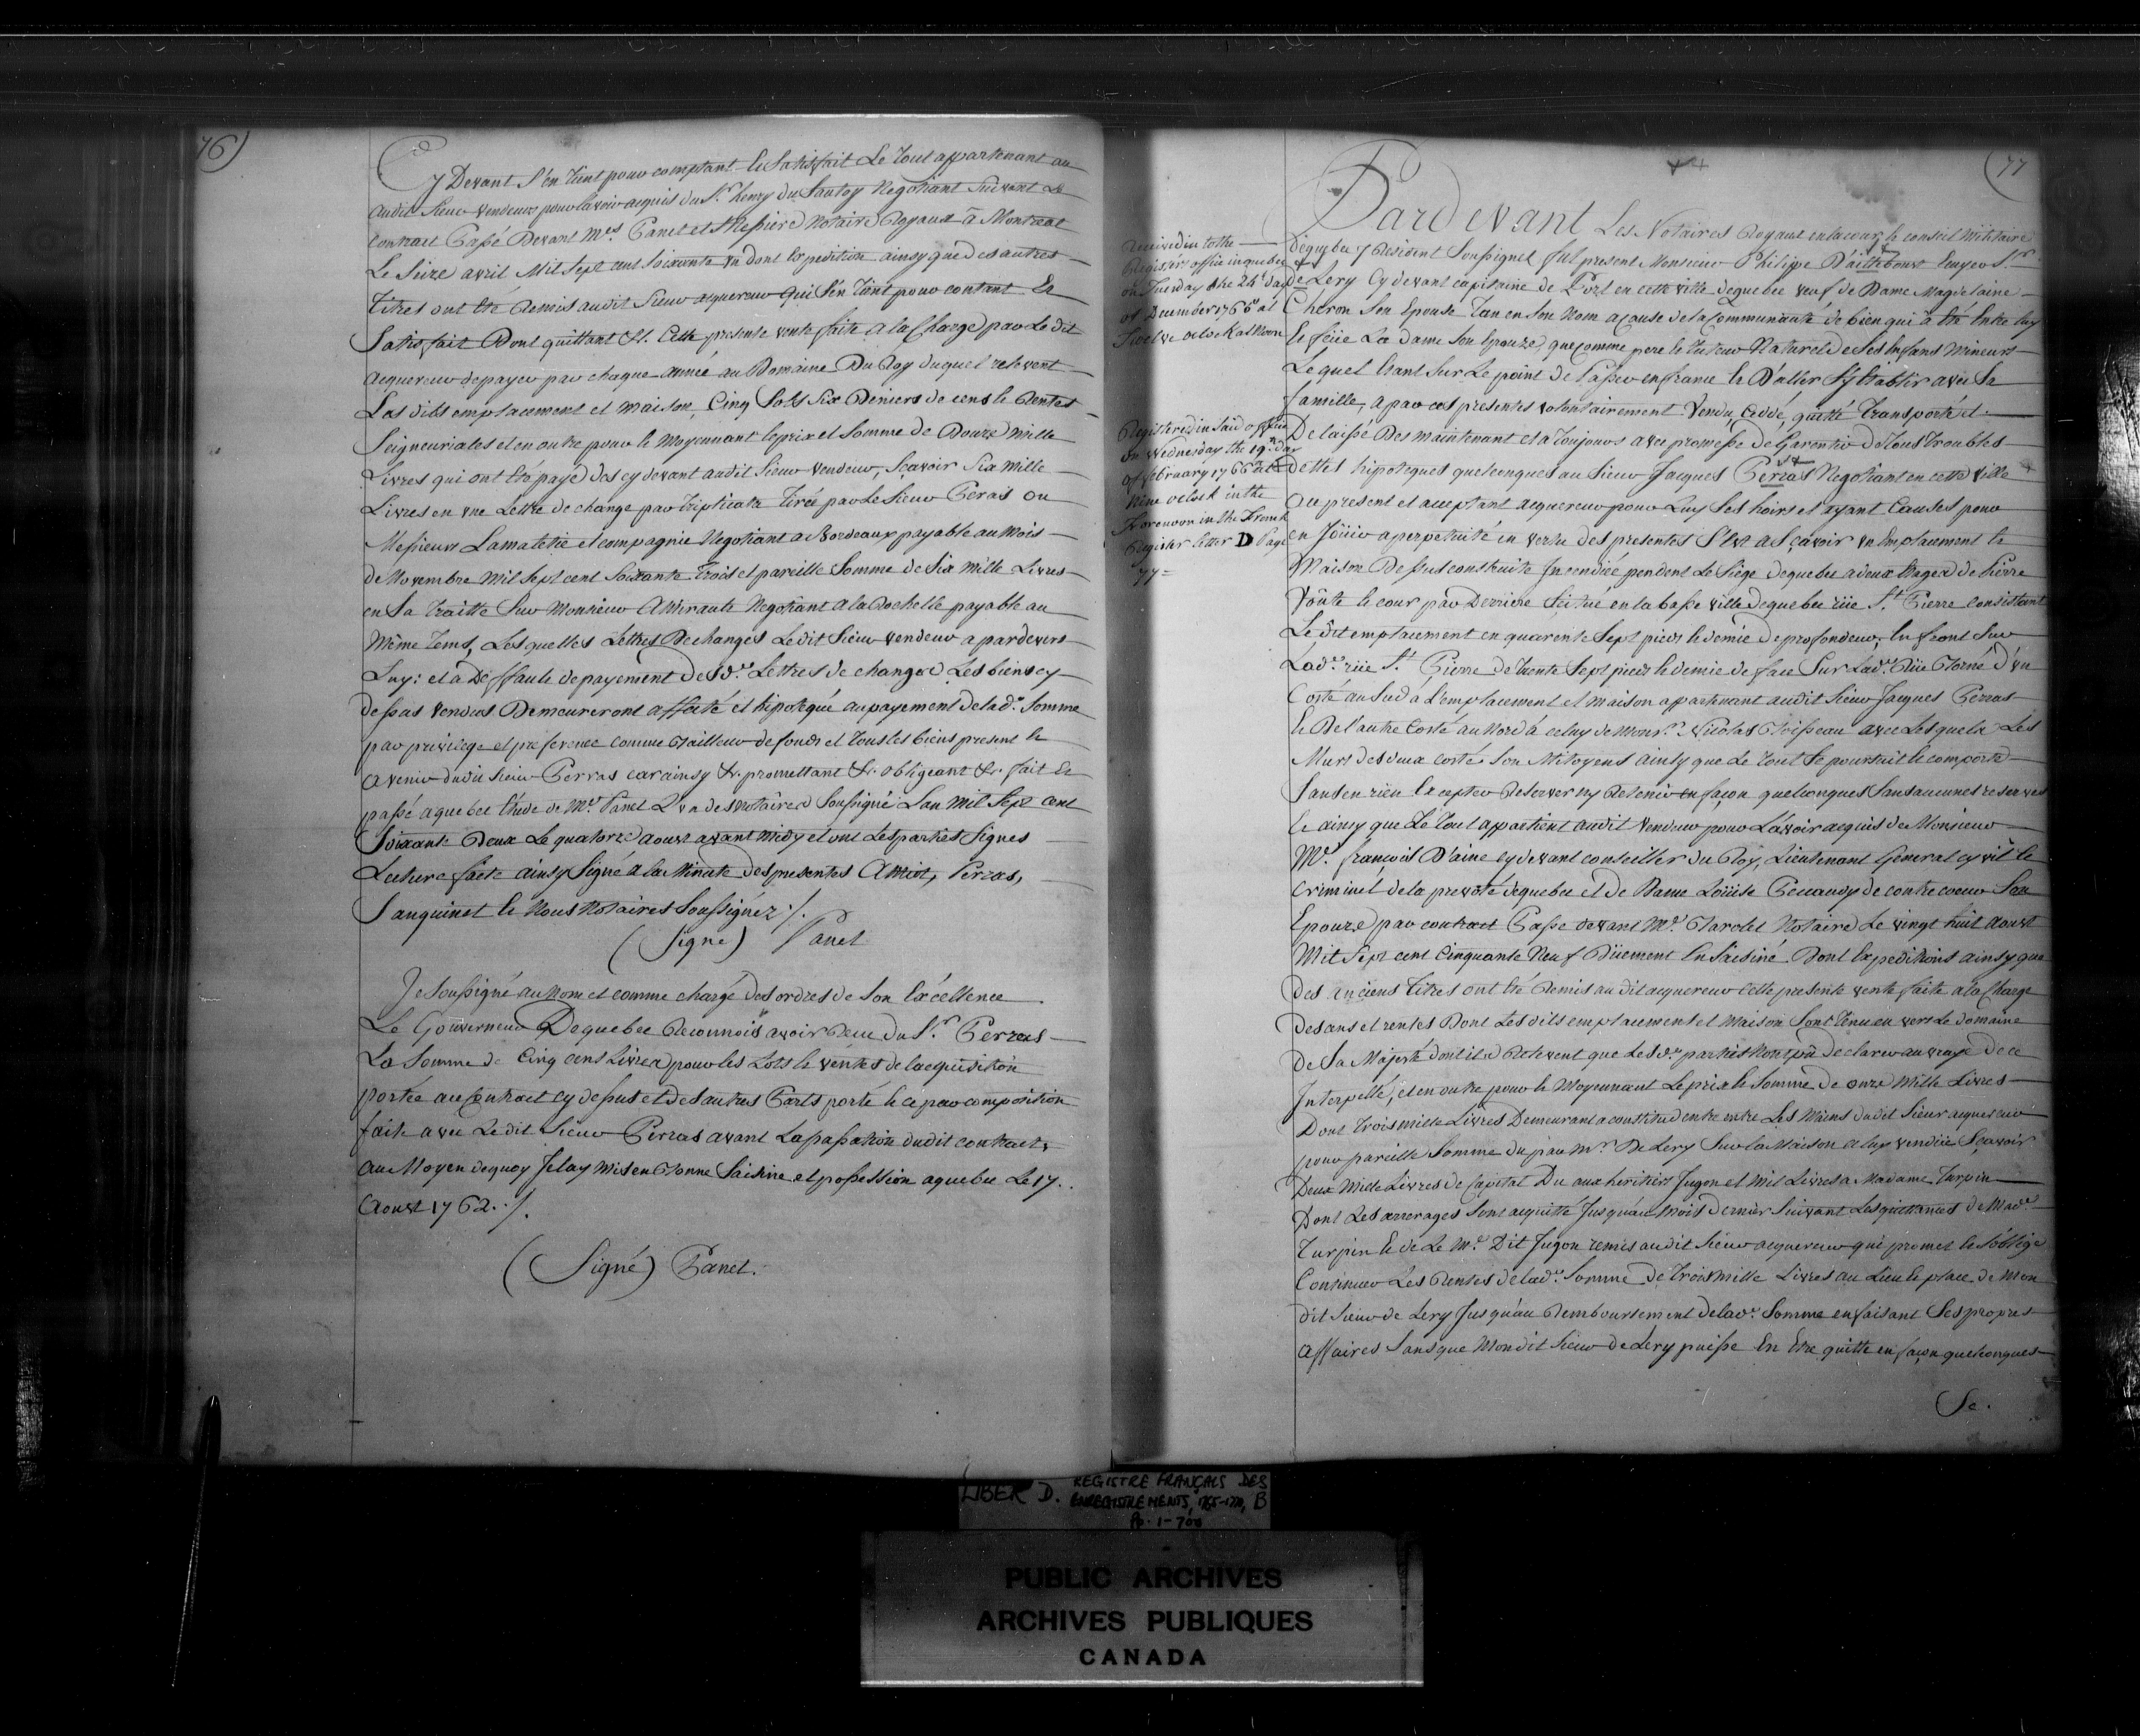 76)
Cy Devant S'en tient pour comptant le Satisfait Le tout appartenant au
audit Sieur Vendeur pour lavoir acquis du Sr. henry du Sautoy Negotiant Suivant Le
Contract Passé Devant Mes. Panet et Mesiere Notaires Royaux à Montreal
Le Seize avril Mil Sept cent Soixante un dont Expedition ainsy que des autres
Titres ont été Remis audit Sieur acquereur qui S'en tient pour contant Et
Satisfait Dont quittant &t. Cette presente vente faite a la Charge par Le dit
acquereur de payer par chaque année au Domaine Du Roy duquel relevent
Les dits emplacement et maison, Cinq Sols Six Deniers de cens le Rentes
Seigneuriales et en outre pour le Moyennant le prix et Somme de Douze Mille
Livres qui ont été payé des cy devant audit Sieur Vendeur, Sçavoir Six Mille
Livres en une Lettre de change par triplicata Tirée par Le Sieur Peras ou
Messieurs Lamaletie et compagnie Negotiant a Bordeaux payable au Mois
de Novembre Mil Sept cent Soixante Trois et pareille Somme de Six Mille Livres
en Sa traitte Sur Monsieur Admirault Negotiant a la Rochelle payable au
Même Tems, Lesquelles Lettres De changes Le dit Sieur Vendeur a pardevers
Luy: et à Deffaute de payement Des de. Lettres de change Les biens cy
dessus vendus Demeureront affecté et hipotequé au payement de lade. Somme
par privilege et preference comme Bailleur de fonds et tous les biens present le
avenir dudit Sieur Perras car ainsy &c. promettant &c. obligeant &c. fait Et
passé a quebec Etude de Me. Panet L'un des notaires Soussigné L'an Mil Sept cent
Soixante Deux Le quatorze aoust avant midy et ont Les parties Signés
Lecture faite ainsy Signé a la Minute des presentes Amiot, Perras,
Sanguinet le Nous Notaires Soussignez ./.
(Signé) Panet
Je Soussigné au Nom et comme chargé des ordres de Son Excellence
Le Gouverneur De quebec Reconnois avoir Reçu du Sr. Perras
La Somme de Cinq cens Livres pour les Lots le ventes de lacquisition
portée au Contract cy dessus et des autres Parts porté le ce par composition
faite avec Le dit Sieur Perras avant La passation dudit contract,
au Moyen dequoy Je lay Mis en Bonne Saisine et possession a quebec Le 17.
Aoust 1762 ./.
(Signé) Panet.
(77
Received in to the
Register office in quebec
on Tuesday the 24 Day
of December 1765 at
Twelve o clock at Noon
Registered in Said office
on Wednesday the 19th. Day
of february 1766 at
Nine o clock in the
Forenoon in the French
Register letter D Page
77
Pardevant Les Notaires Royaux en la cour, le conseil Militaire
dequebec y Resident Soussignés fut present Monsieur Philippe Dailleboust Ecuyer Sr.
de Lery Cy devant capitaine de Port en cette ville de quebec veuf de Dame Magdelaine
Cheron Son Epouse Tan en Son Nom a cause de la Communauté de bien qui à été Entre luy
le feüe La dame Son Epouze, que comme pere le tuteur Naturel de Ses Enfans Mineurs
Lequel Etant Sur Le point de Passer en france le D'aller S'y Etablir avec Sa
famille, a par ces presentes volontairement Vendu, Cédé, quitté Transporté et
Delaissé Des maintenant et a toujours avec promesse de Garentir de tous troubles
dettes hipoteques quelconques au Sieur Jacques Perras Negotiant en cette Ville
au present et acceptant acquereur pour Luy Ses hoirs et ayant Causes pour
en Jouir a perpetuité en vertu des presentes C'est a Sçavoir un Emplacement le
Maison Dessus construite Incendiée pendent Le Siège dequebec a deux Etages de Pierre
Voûte le cour par Derriere Scitué en la basse ville dequebec rüe St. Pierre Consistant
Ledit emplacement en quarente Sept pieds le demie de profondeur, En front Sur
Lade. rüe St. Pierre de trente Sept pieds le demie de face Sur Lade. Rüe Borné d'un
Costé au Sud à L'emplacement et Maison appartenant audit Sieur Jacques Perras
le De l'autre Costé au Nord à celuy de Monsr. Nicolas Boisseau avec Lesquels Les
Murs des deux costés Son Mitoyens ainsy que Le tout Se poursuit le comporte
Sans en rien Excepter Reserver ny Retenir en façon quelconques Sans aucunes reserves
le ainsy que Le tout appartient audit Vendeur pour L'avoir acquis de Monsieur
Me. françois D'aine cy devant conseiller du Roy, Lieutenant General cyvil le
Criminel de la prevoté dequebec et de Dame Loüise Pecaudy de contrecoeur Son
Epouze par contract Passé devant Me. Barolet Notaire Le vingt huit Aoust
Mil Sept cent Cinquante Neuf Düement Ensaisiné. Dont Expeditions ainsy que
Des anciens Titres ont été Remis audit acquereur Cette presente vente faite a la Charge
Des cens et rentes Dont Les dits emplacement et Maison Sont tenu envers Le domaine
De Sa Majesté dont ils Relevent que Les de. parties Non pû Declarer au vraye de ce
Interpellé, et en outre pour le Moyennant Le prix le Somme de onze Mille Livres
Dont trois mille Livres Demeurant a constitut entre Les Mains dudit Sieur acquereur
pour pareille Somme du par Mr. De Lery Sur la Maison a luy vendüe Sçavoir
Deux Mille Livres de Capital Du aux heritiers Jugon et Mil Livres a Madame Turpin
Dont Les arrerages Sont acquitté Jusqu'au Mois Dernier Suivant Les quittances de Made.
Turpin le de Le Me. Dit Jugon remis audit Sieur acquereur qui promet le S'oblige
Continuer Les Rentes de lade. Somme de trois Mille Livres au Lieu le place de Mon
dit Sieur de Lery Jusqu'au Remboursement de lade. Somme en faisant Ses propres
Affaires Sans que Mondit Sieur de Lery puisse En Etre quitte en façon quelconques
Se.
LIBER D. REGISTRE FRANÇAIS DES
ENREGISTREMENTS, 1765-1770, B
Pp. 1-700
PUBLIC ARCHIVES
ARCHIVES PUBLIQUES
CANADA